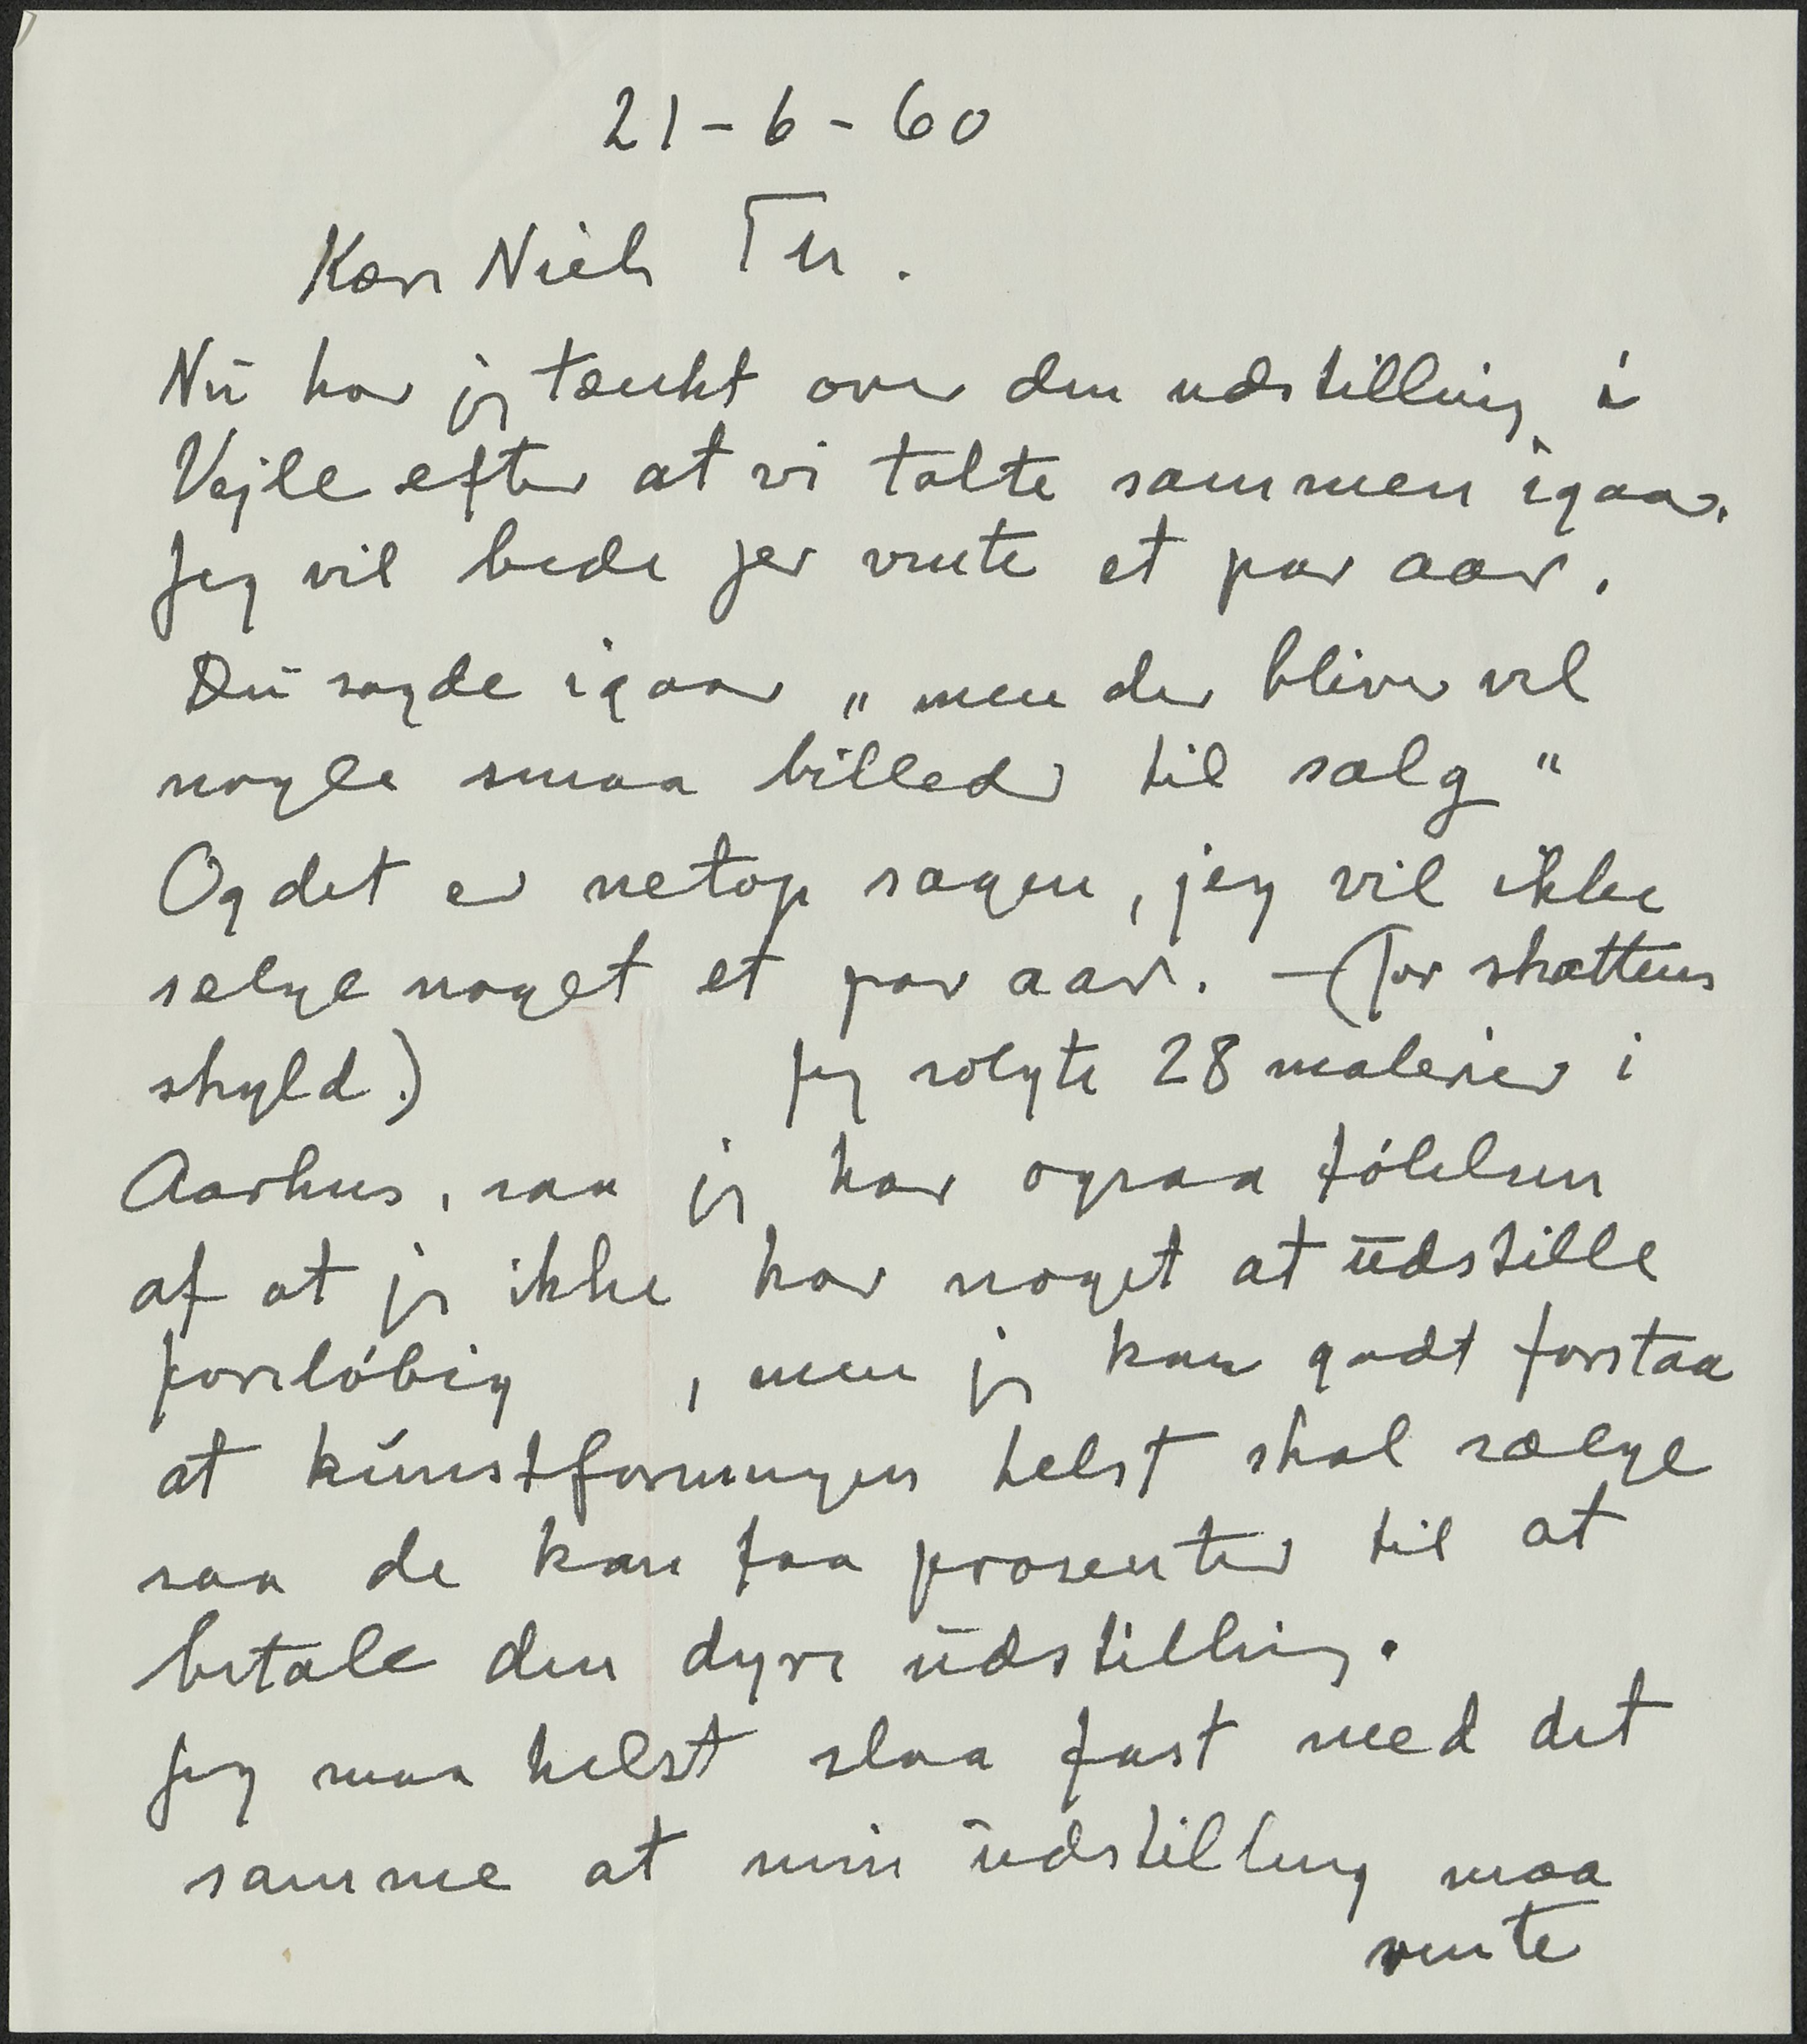 21-6-60
Kære Niels Th.
Nu har jeg tænkt over den udstilling i
Vejle efter at vi talte sammen igaar.
Jeg vil bede jer vente et par aar.
Du sagde igaar „men der bliver vel
nogle smaa billeder til salg"
Og det er netop sagen, jeg vil ikke
sælge noget et par aar. - (for skattens
skyld.) Jeg solgte 28 malerier i
Aarhus, saa jeg har ogsaa følelsen
af at jeg ikke har noget at udstille
foreløbig, men jeg kan godt forstaa
at kunstforeningen helst skal sælge
saa de kan faa prosenter til at
betale den dyre udstilling.
Jeg maa helst slaa fast med det
samme at min udstilling maa
vente